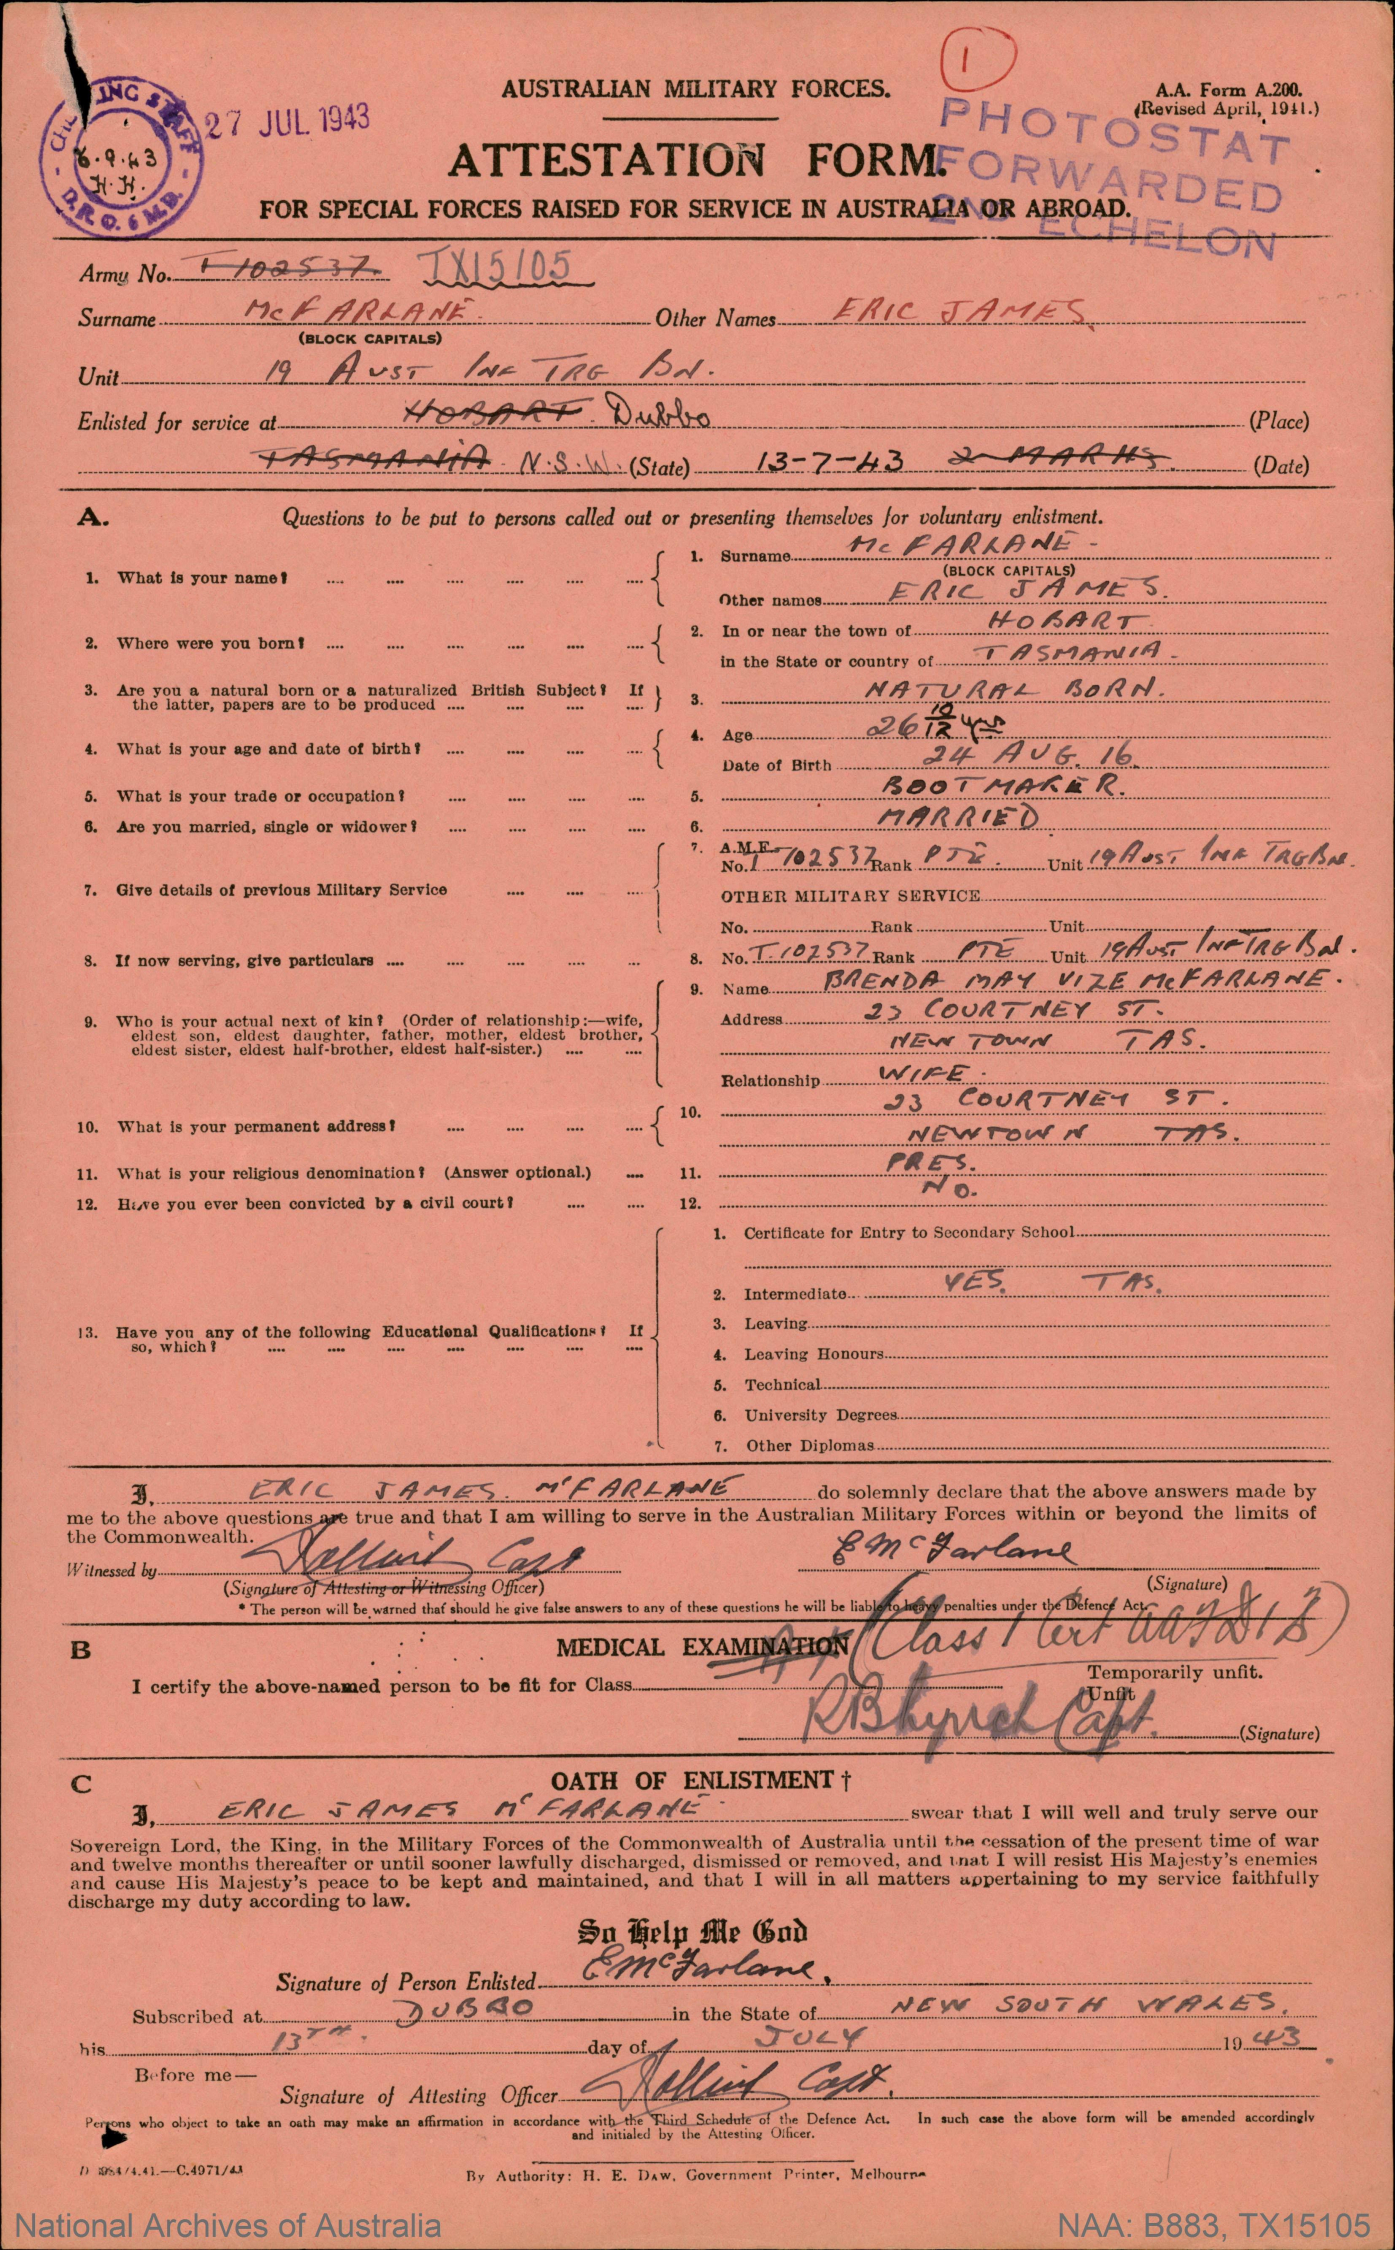 1
AUSTRALIAN MILITARY FORCES.
A.A. Form A.200.
(Revised April, 1941.)
27 JUL 1943
PHOTOSTAT
FORWARDED
2ND ECHELON
ING STAFF
6.9.43
H.H.
D.R.O. 6 M.D.
ATTESTATION FORM.
FOR SPECIAL FORCES RAISED FOR SERVICE IN AUSTRALIA OR ABROAD.
Army No. T 102537. TX15105
Surname McFARLANE. Other Names ERIC JAMES.
(BLOCK CAPITALS)
Unit 19 AUST INF TRG BN.
Enlisted for service at HOBART. Dubbo (Place)
TASMANIA N.S.W. (State) 13-7-43 2 MAR 43. (Date)
A. Questions to be put to persons called out or presenting themselves for voluntary enlistment.
1. What is your name? 1. Surname McFARLANE -
(BLOCK CAPITALS)
Other names ERIC JAMES.
2. Where were you born? 2. In or near the town of HOBART
in the State or country of TASMANIA -
3. Are you a natural born or a naturalized British Subject? If
the latter, papers are to be produced 3. NATURAL BORN.
4. What is your age and date of birth? 4. Age 26 10/12 yrs
Date of Birth 24 AUG. 16.
5. What is your trade or occupation? 5. BOOTMAKER.
6. Are you married, single or widower? 6. MARRIED
7. Give details of previous Military Service 7. A.M.F.
No. T 102537 Rank PTE. Unit 19 AUST INF TRG BN.
OTHER MILITARY SERVICE
No. Rank Unit
8. If now serving, give particulars 8. No. T.102537 Rank PTE Unit 19 AUST INF TRG BN.
9. Who is your actual next of kin? (Order of relationship:—wife,
eldest son, eldest daughter, father, mother, eldest brother,
eldest sister, eldest half-brother, eldest half-sister.)
9. Name BRENDA MAY VIZE McFARLANE.
Address 23 COURTNEY ST.
NEW TOWN TAS.
Relationship WIFE.
10. What is your permanent address? 10. 23 COURTNEY ST.
NEWTOWN TAS.
11. What is your religious denomination? (Answer optional.) 11. PRES.
12. Have you ever been convicted by a civil court? 12. NO.
13. Have you any of the following Educational Qualifications? If
so, which?
1. Certificate for Entry to Secondary School
2. Intermediate YES. TAS.
3. Leaving
4. Leaving Honours
5. Technical
6. University Degrees
7. Other Diplomas
I, ERIC JAMES. McFARLANE do solemnly declare that the above answers made by
me to the above questions are true and that I am willing to serve in the Australian Military Forces within or beyond the limits of
the Commonwealth.
Witnessed by Capt E McFarlane
(Signature of Attesting or Witnessing Officer) (Signature)
* The person will be warned that should he give false answers to any of these questions he will be liable to heavy penalties under the Defence Act.
B MEDICAL EXAMINATION
(Class 1 Cert
I certify the above-named person to be fit for Class Temporarily unfit.
Unfit
Capt. (Signature)
C OATH OF ENLISTMENT †
I, ERIC JAMES McFARLANE swear that I will well and truly serve our
Sovereign Lord, the King, in the Military Forces of the Commonwealth of Australia until the cessation of the present time of war
and twelve months thereafter or until sooner lawfully discharged, dismissed or removed, and that I will resist His Majesty's enemies
and cause His Majesty's peace to be kept and maintained, and that I will in all matters appertaining to my service faithfully
discharge my duty according to law.
So Help Me God
Signature of Person Enlisted E McFarlane.
Subscribed at DUBBO in the State of NEW SOUTH WALES.
his 13TH. day of JULY 1943
Before me—
Signature of Attesting Officer Capt.
Persons who object to take an oath may make an affirmation in accordance with the Third Schedule of the Defence Act. In such case the above form will be amended accordingly
and initialed by the Attesting Officer.
D 1984/4.41.—C.4971/43
By Authority: H. E. DAW, Government Printer, Melbourne
National Archives of Australia
NAA: B883, TX15105